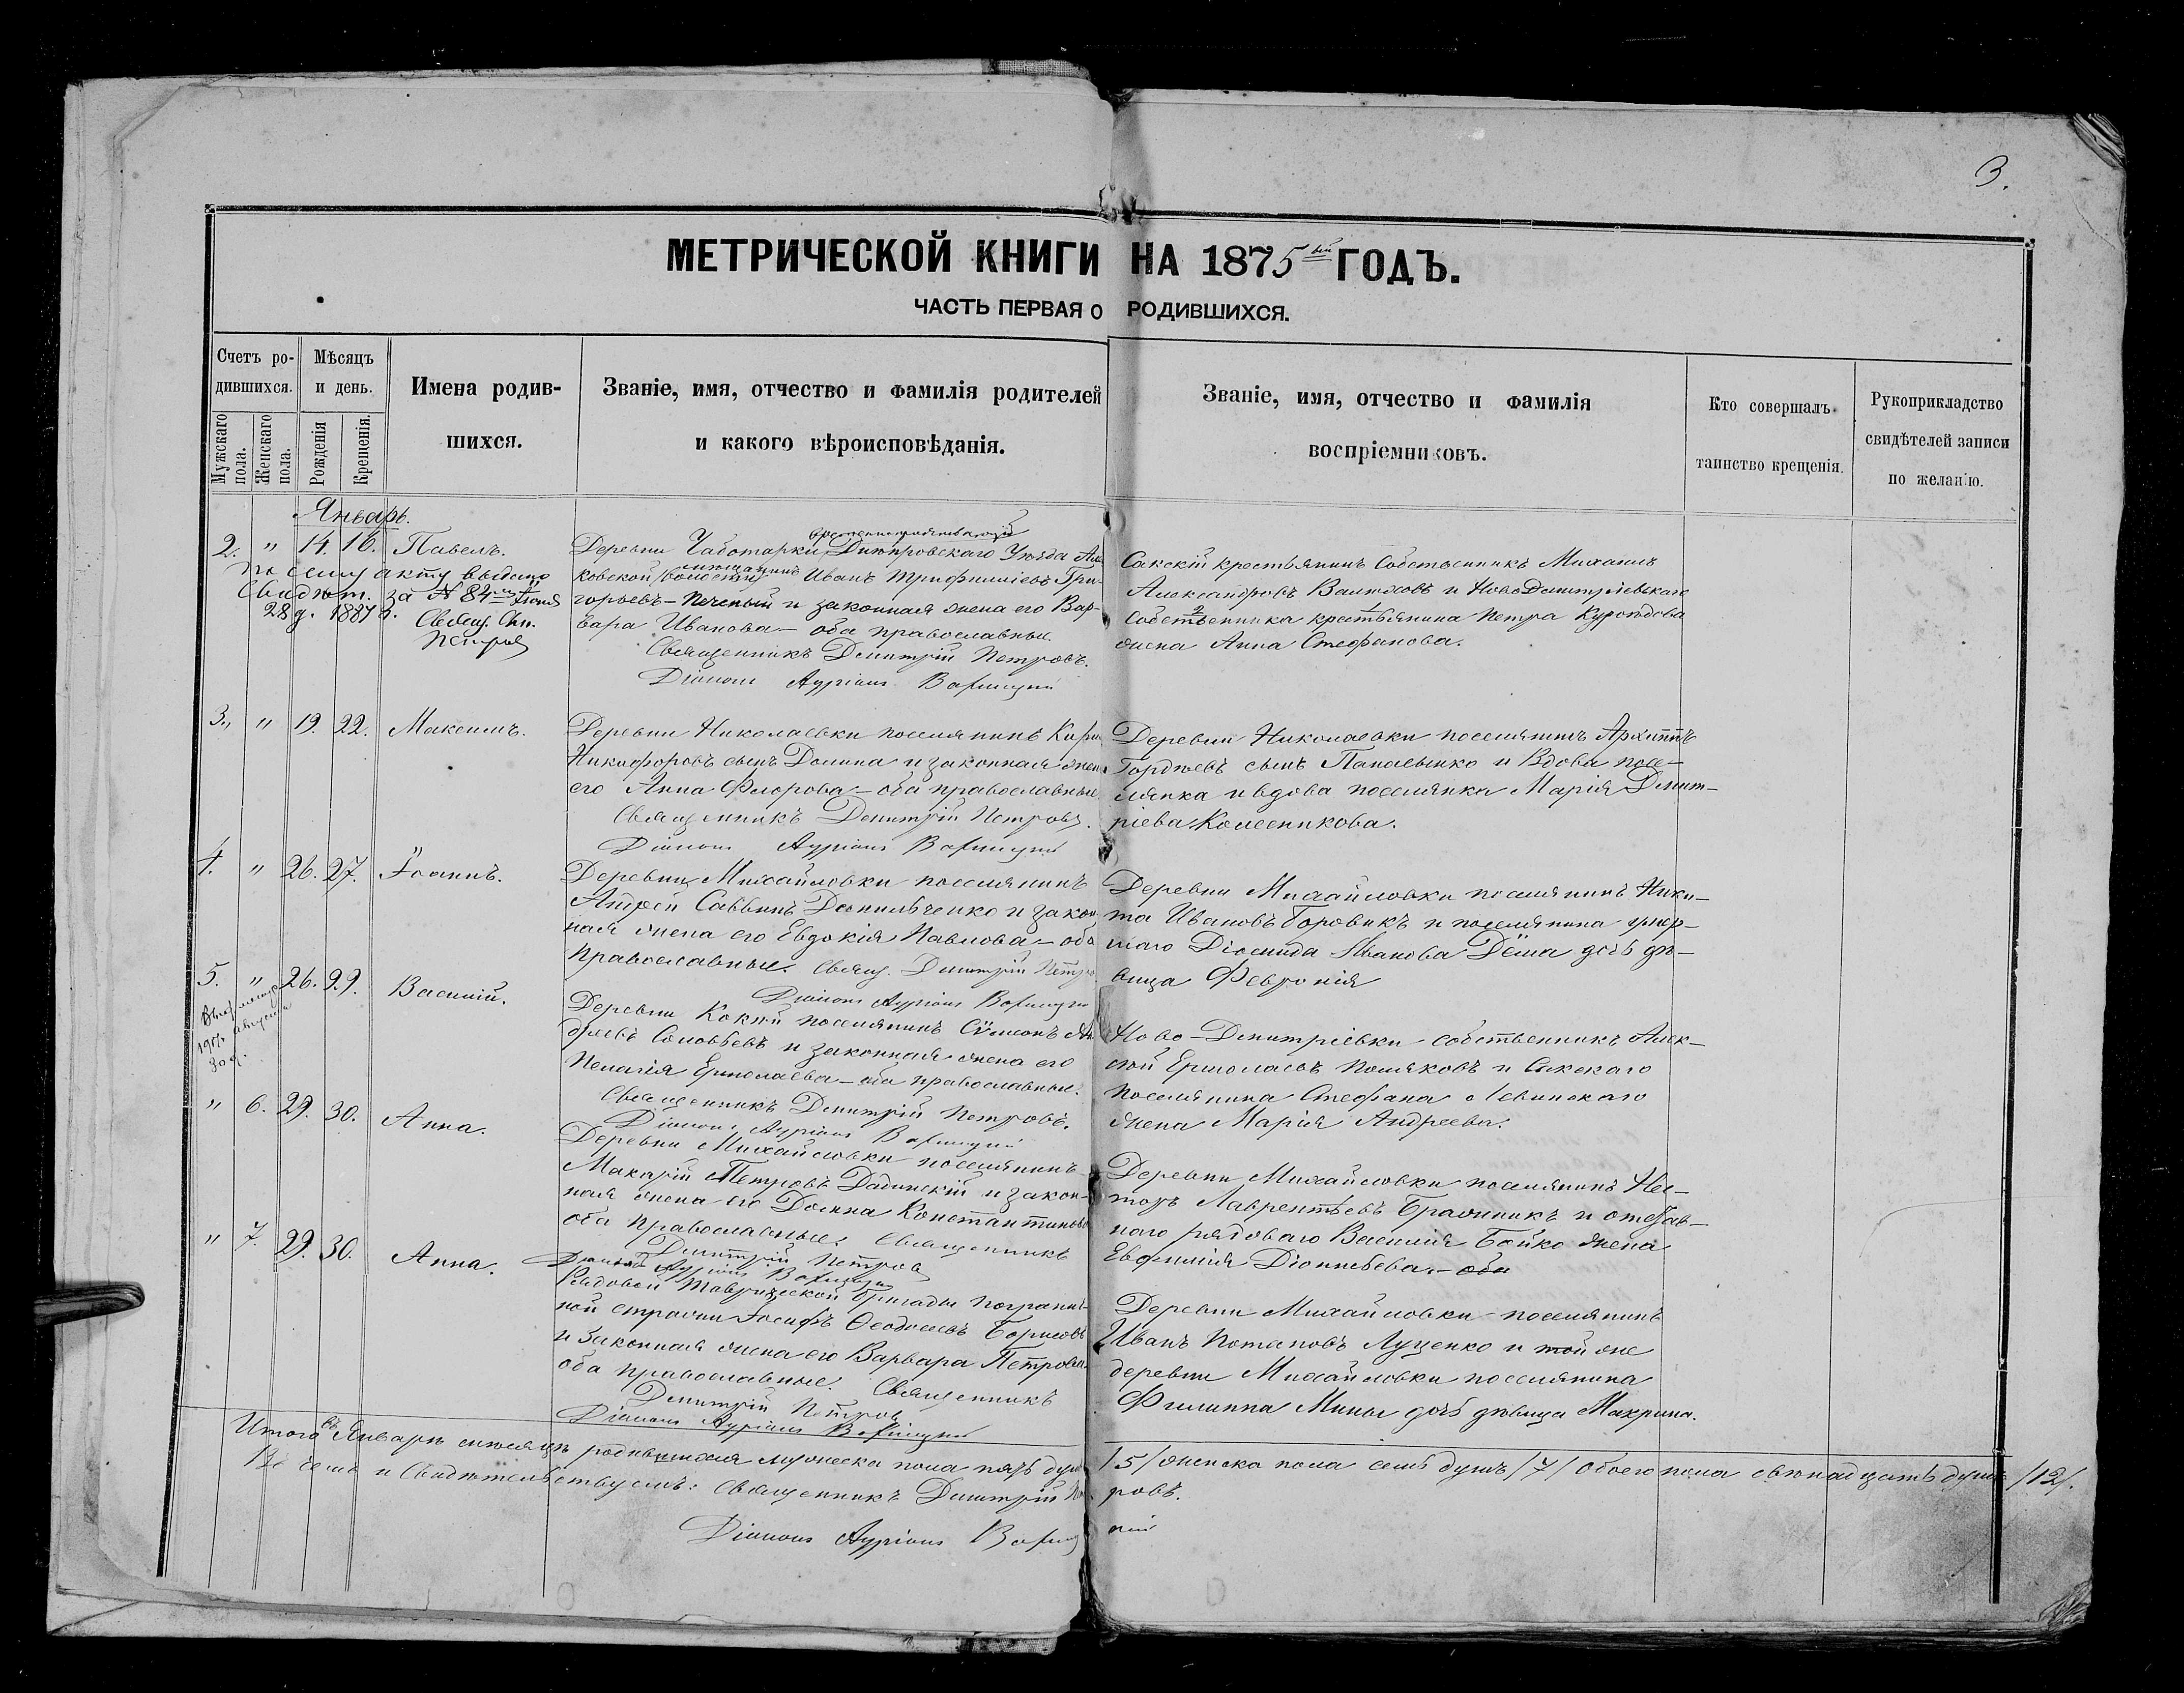 3.
МЕТРИЧЕСКОЙ КНИГИ НА 1875ый ГОДЪ.
ЧАСТЬ ПЕРВАЯ О РОДИВШИХСЯ.
Счетъ ро-
дившихся.
Мужскаго пола.
Женскаго пола.
Мѣсяцъ
и день.
Рожденія
Крещенія.
Имена родив-
шихся.
Званіе, имя, отчество и фамилія родителей
и какого вѣроисповѣданія.
Званіе, имя, отчество и фамилія
воспріемниковъ.
Кто совершалъ
таинство крещенія.
Рукоприкладство
свидѣтелей записи
по желанію.
Январь.
2. " 14. 16. Павелъ.
По сему акту выдано
Свидѣт. за № 84
28 д. 1887 г.
Петровъ
Деревни Чаботарки Днѣпровскаго Уѣзда
ковской волости Иванъ Трифилліевъ Гри-
горьевъ - Печеный и законная жена его Вар-
вара Иванова - оба православные.
Священникъ Димитрій Петровъ.
Сакскій крестьянинъ Собственникъ Михаилъ
Александровъ и Ново Димитріевскаго
Собственника крестьянина Петра
жена Анна Стефанова.
3. " 19. 22. Максимъ.
Деревни Николаевки поселянинъ
Никифоровъ сынъ Долина и законная жена
его Анна - оба православные
Священникъ Димитрій Петровъ.
Деревни Николаевки поселянинъ Архиппъ
Гордѣевъ сынъ Панасенко и Вдова посе-
лянка и вдова поселянка Марія Димит-
ріева Колесникова.
4. " 26. 27. Іоаннъ.
Деревни Михайловки поселянинъ
Андрей Саввинъ и закон-
ная жена его Евдокія Павлова - оба
православные. Свящ. Димитрій Петровъ
Деревни Михайловки поселянинъ Ники-
та Ивановъ Боровикъ и поселянина умер-
шаго Діомида Иванова дочь дѣ-
вица Февронія
5. " 26. 29. Василій.
Деревни поселянинъ Сѵмеонъ
Соловьевъ и законная жена его
Пелагія Ермолаева - оба православные.
Священникъ Димитрій Петровъ.
Ново-Димитріевки собственникъ Алек-
сѣй Ермолаевъ Поляковъ и Сакскаго
поселянина Стефана Левинскаго
жена Марія Андреева.
" 6. 29. 30. Анна.
Деревни Михайловки поселянинъ
Макарій Петровъ и закон-
ная жена его Домна Константинова
оба православные. Священникъ
Димитрій Петровъ
Деревни Михайловки поселянинъ Нес-
торъ Лаврентьевъ Бражникъ и отстав-
наго рядоваго Василія Бойко жена
Евфимія Діонисьева. - оба
" 7. 29. 30. Анна.
Рядовой Таврической бригады погранич-
ной стражи Іосифъ Ѳеодосіевъ
и законная жена его Варвара Петрова
оба православные. Священникъ
Димитрій Петровъ
Деревни Михайловки поселянинъ
Иванъ Потаповъ Луценко и той же
деревни Михайловки поселянина
Филиппа Мины дочь дѣвица Макрина.
Итого въ Январѣ мѣсяцѣ родившихся мужеска пола пять душъ /5/ женска пола семь душъ /7/ обоего пола двѣнадцать душъ /12/.
Въ чемъ и свидѣтельствуемъ: Священникъ Димитрій Петровъ.